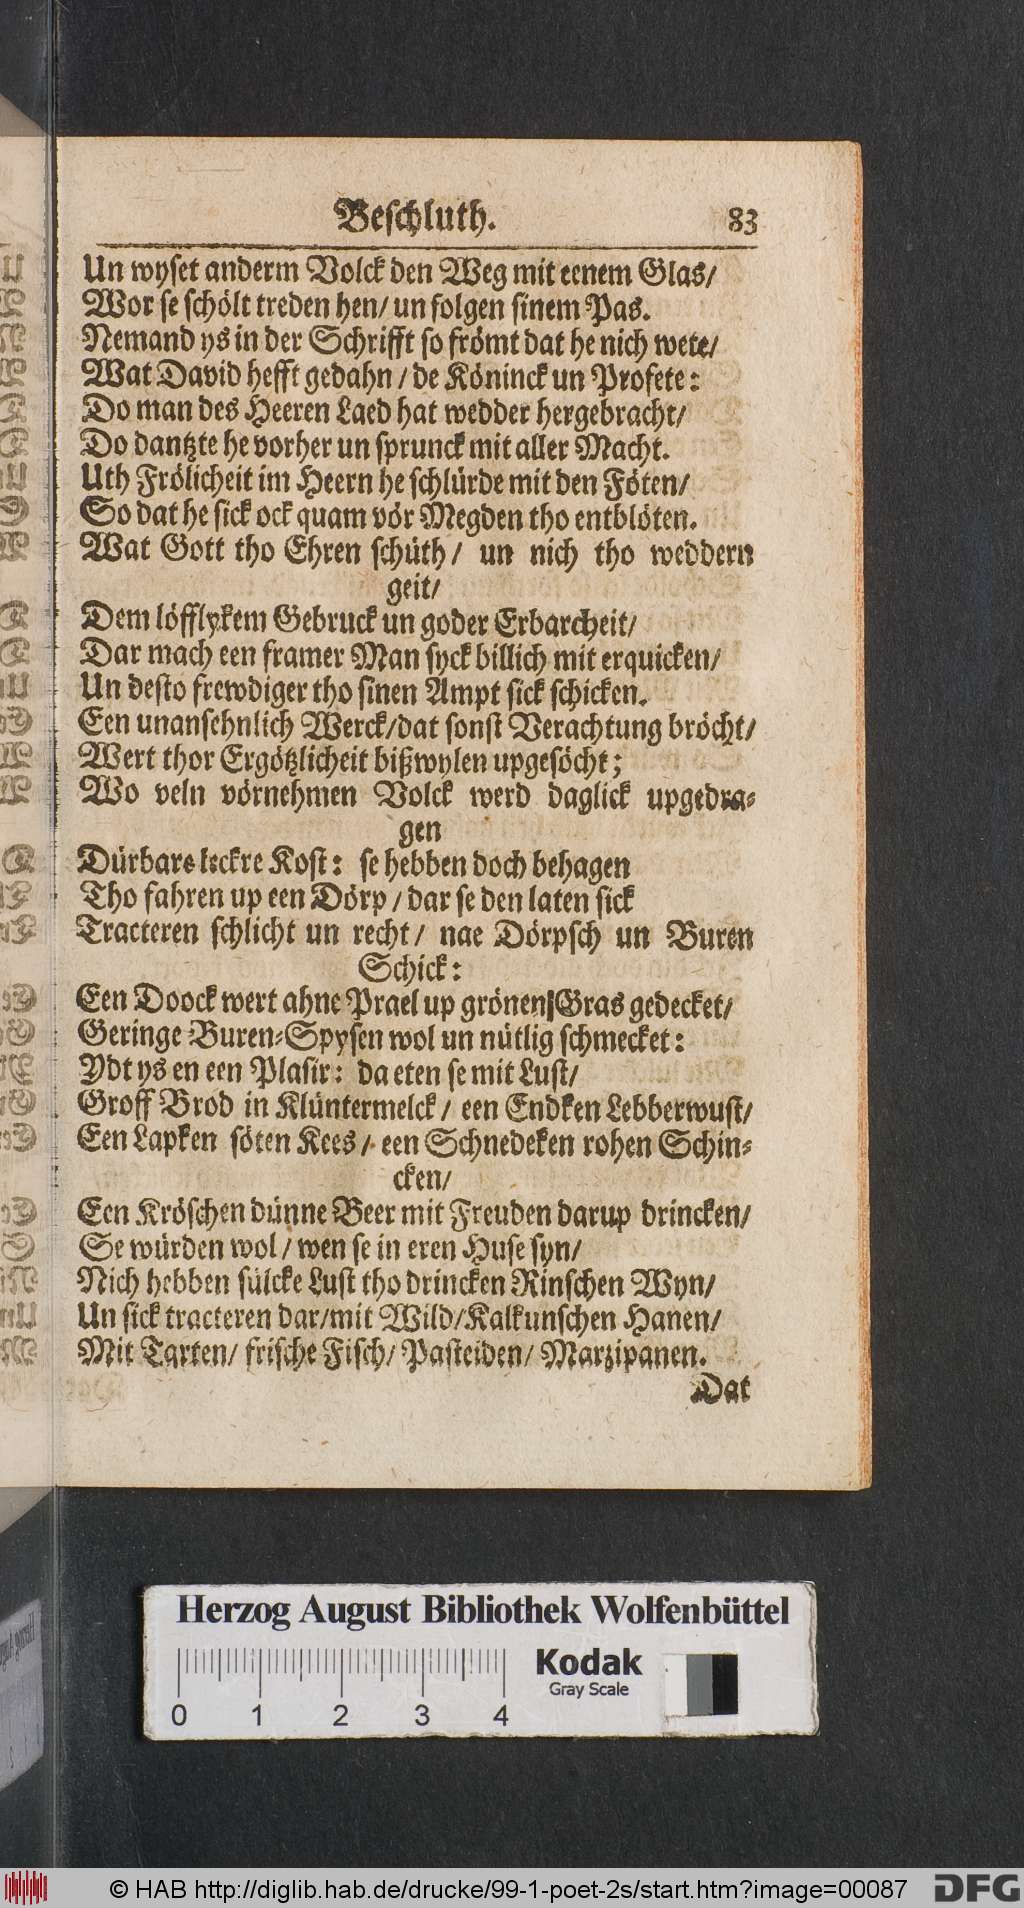 Beschluth. 83
Un wyset anderm Volck den Weg mit eenem Glas/
Wor se schölt treden hen/ un folgen sinem Pas.
Nemand ys in der Schrifft so frömt dat he nich wete/
Wat David hefft gedahn / de Köninck un Profete:
Do man des Heeren Laed hat wedder hergebracht/
Do dantzte he vorher un sprunck mit aller Macht.
Uth Frölicheit im Heern he schlürde mit den Föten/
So dat he sick ock quam vör Megden tho entblöten.
Wat Gott tho Ehren schüth/ un nich tho weddern
geit/
Dem löfflykem Gebruck un goder Erbarcheit/
Dar mach een framer Man syck billich mit erquicken/
Un desto frewdiger tho sinen Ampt sick schicken.
Een unansehnlich Werck/dat sonst Verachtung bröcht/
Wert thor Ergötzlicheit bißwylen upgesöcht;
Wo veln vörnehmen Volck werd daglick upgedra-
gen
Dürbare leckre Kost: se hebben doch behagen
Tho fahren up een Dörp / dar se den laten sick
Tracteren schlicht un recht/ nae Dörpsch un Buren
Schick:
Een Doock wert ahne Prael up grönen Gras gedecket/
Geringe Buren-Spysen wol un nütlig schmecket:
Ydt ys en een Plasir: da eten se mit Lust/
Groff Brod in Klüntermelck / een Endken Lebberwust/
Een Lapken söten Kees / een Schnedeken rohen Schin-
cken/
Een Kröschen dünne Beer mit Freuden darup drincken/
Se würden wol / wen se in eren Huse syn/
Nich hebben sülcke Lust tho drincken Rinschen Wyn/
Un sick tracteren dar/mit Wild/Kalkunschen Hanen/
Mit Tarten/ frische Fisch/ Pasteiden/ Marzipanen.
Dat
Herzog August Bibliothek Wolfenbüttel
Kodak
Gray Scale
0 1 2 3 4
© HAB http://diglib.hab.de/drucke/99-1-poet-2s/start.htm?image=00087
DFG